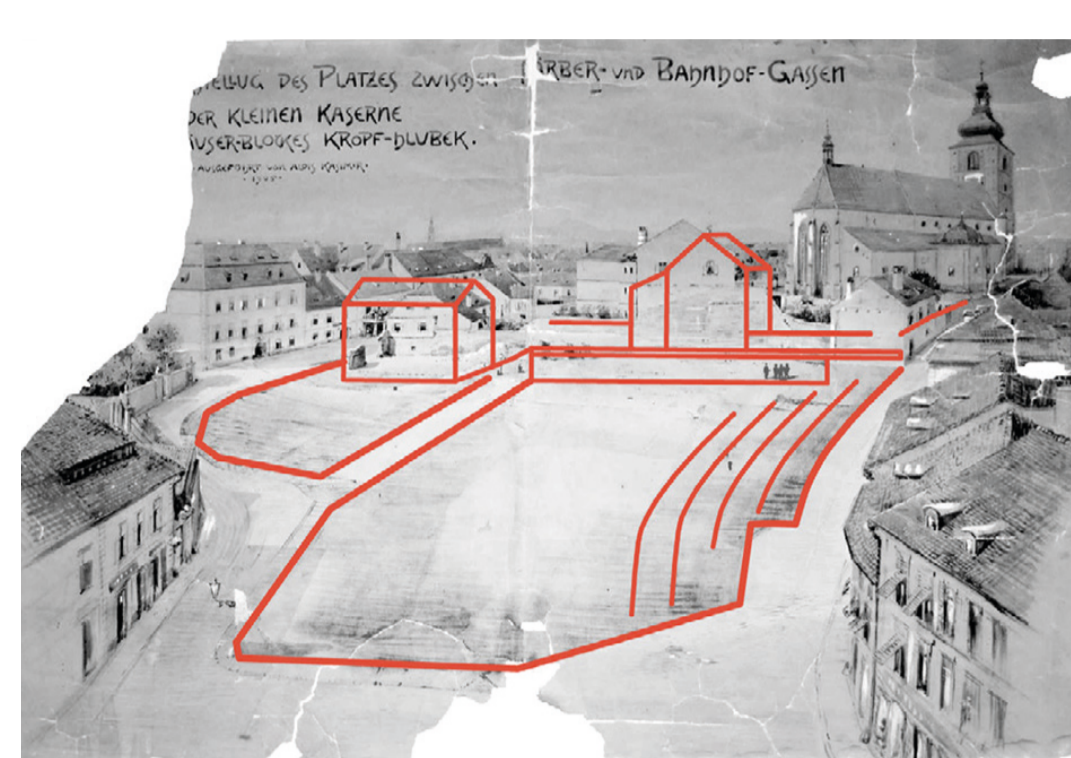 DES PLATZES ZWISCHEN FÄRBER- UND BAHNHOF-GASSEN
DER KLEINEN KASERNE
KROPF-HLUBEK.
AUSGEFÜHRT VON ALOIS KASIMIR.